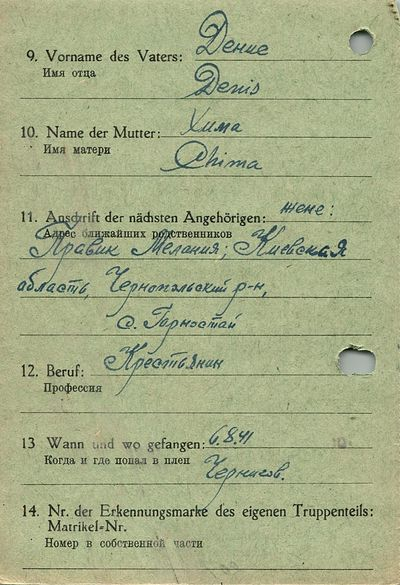 9. Vorname des Vaters: Денис
Имя отца
Denis
10. Name der Mutter: Хима
Имя матери
Chima
11. Anschrift der nächsten Angehörigen: жене:
Адрес ближайших родственников
Правик Мелания, Киевская
область, Чернопольский р-н,
с. Горностай
12. Beruf: Крестьянин
Профессия
13 Wann und wo gefangen: 6.8.41
Когда и где попал в плен
14. Nr. der Erkennungsmarke des eigenen Truppenteils:
Matrikel-Nr.
Номер в собственной части